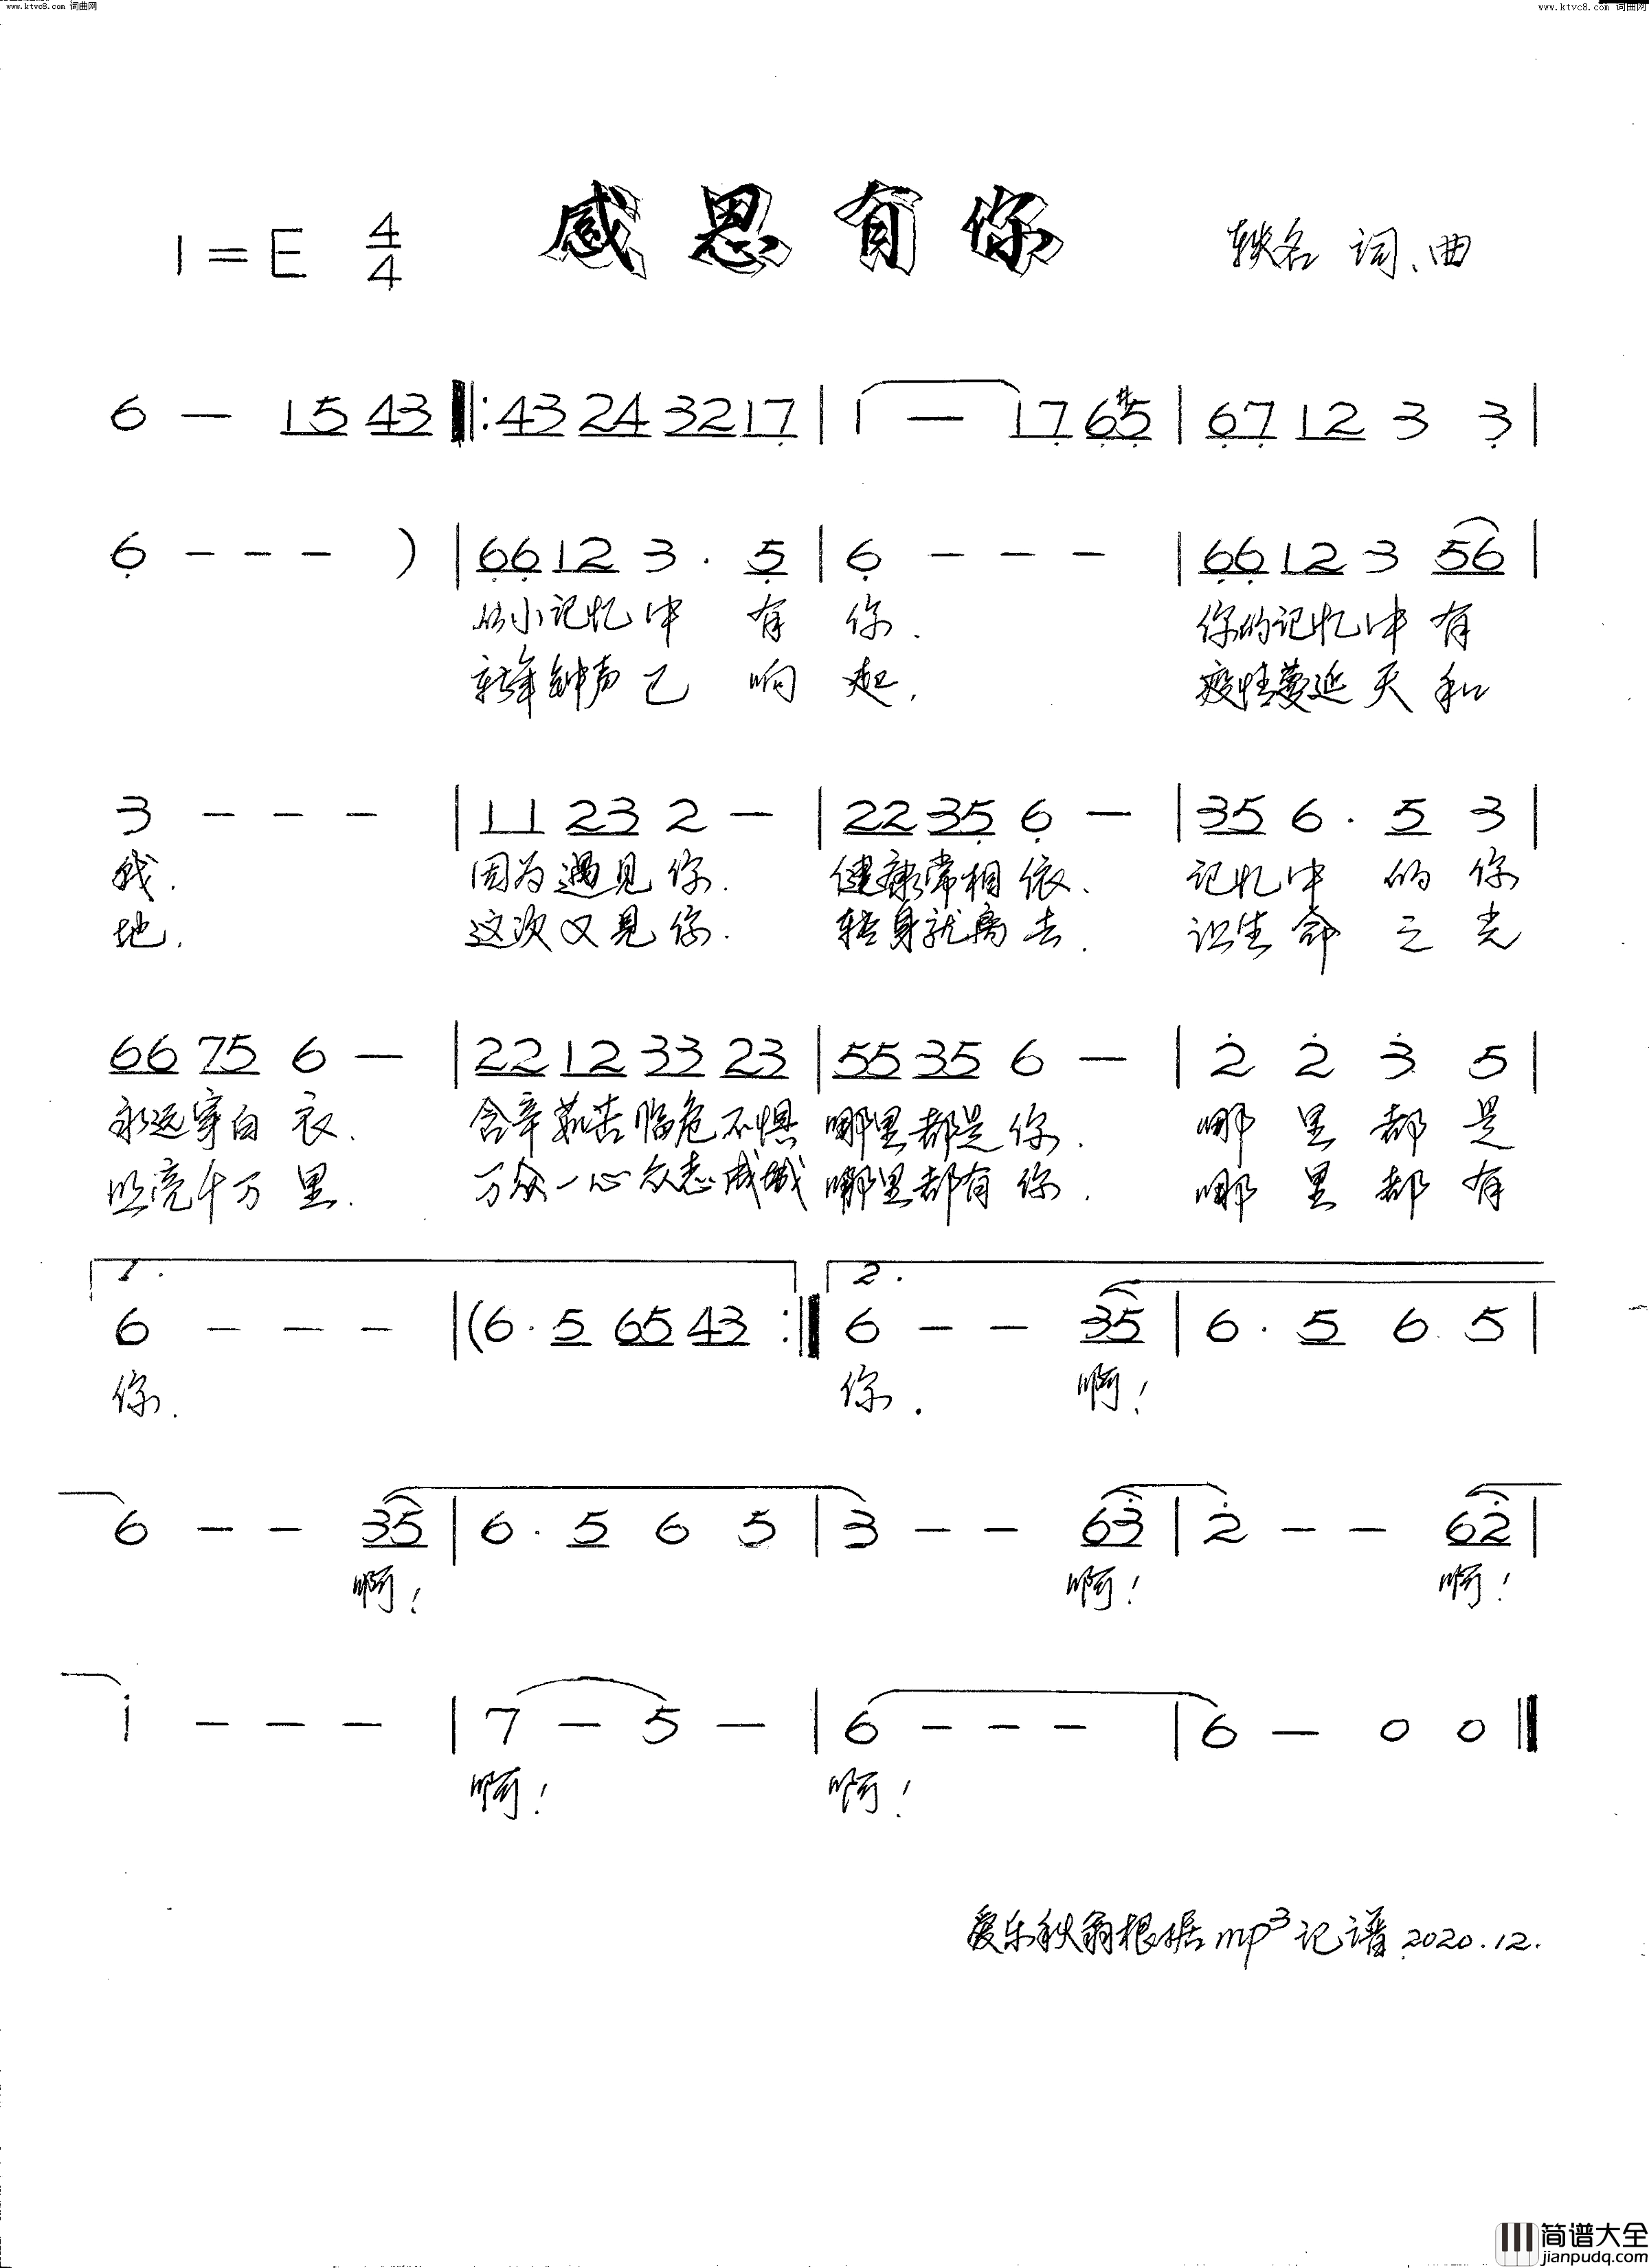 www.ktvc8.com 词曲网 www.ktvc8.com 词曲网
1=E 4/4 感恩有你 轶名 词、曲
6 — 15 43 ‖: 43 24 32 17 | 1 — 17 6#5 | 67 12 3 3 |
6 - - - ) | 66 12 3 · 5 | 6 - - - | 66 12 3 56 |
从小记忆中 有 你. 你的记忆中 有
新年钟声已 响 起. 疫情蔓延天 和
3 - - - | 11 23 2 — | 22 35 6 — | 35 6 · 5 3 |
我. 因为遇见你. 健康常相依. 记忆中 的 你
地. 这次又见你. 转身就离去. 让生命 之 光
66 75 6 — | 22 12 33 23 | 55 35 6 — | 2 2 3 5 |
永远穿白衣. 含辛茹苦临危不惧 哪里都是你. 哪 里 都 是
照亮千万里. 万众一心众志成城 哪里都有你. 哪 里 都 有
1. 2.
6 - - - | (6 · 5 65 43 :‖ 6 - - 35 | 6 · 5 6 5 |
你. 你. 啊!
6 - - 35 | 6 · 5 6 5 | 3 - - 63 | 2 - - 62 |
啊! 啊! 啊!
1 - - - | 7 — 5 — | 6 - - - | 6 — 0 0 ‖
啊! 啊!
爱乐秋翁根据mp3记谱 2020.12.
简谱大全
jianpudq.com